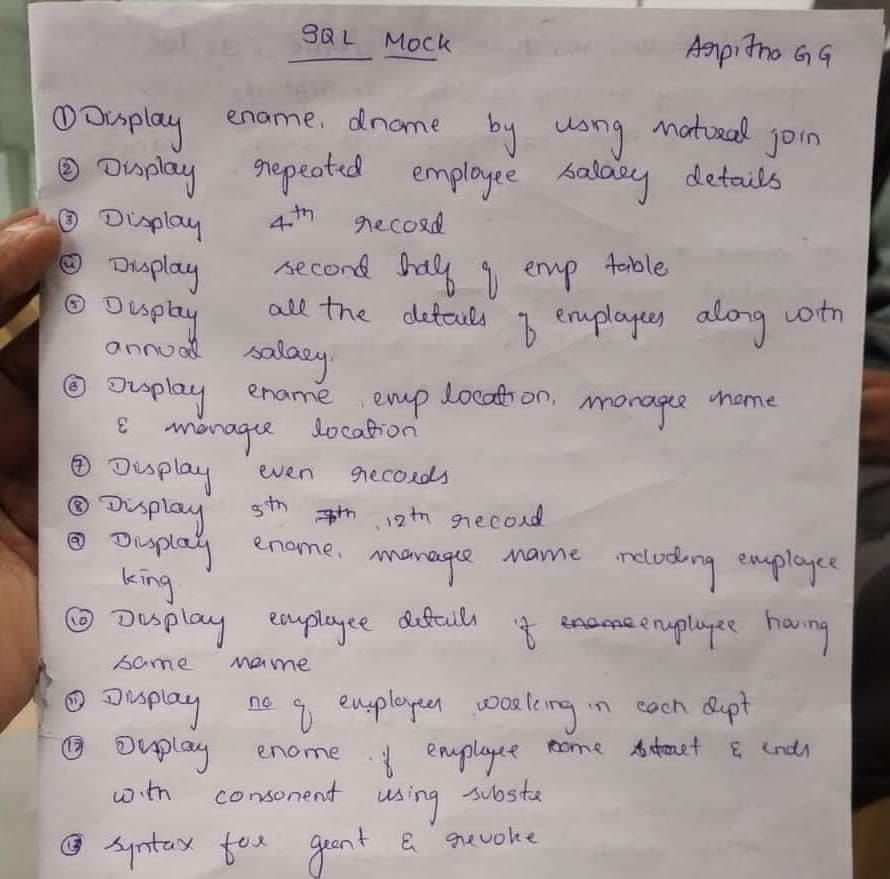 SQL Mock
Arpitha G G
① Display ename, dname by using natural join
② Display repeated employee salary details
③ Display 4th record
④ Display second half of emp table
⑤ Display all the details of employees along with
annual salary.
⑥ Display ename, emp location, manager name
& manager location
⑦ Display even records
⑧ Display 5th 7th, 12th record
⑨ Display ename, manager name including employee
king
⑩ Display employee details if ename employee having
same name
⑪ Display no of employees working in each dept
⑫ Display ename if employee name start & ends
with consonent using substr
⑬ syntax for grant & revoke